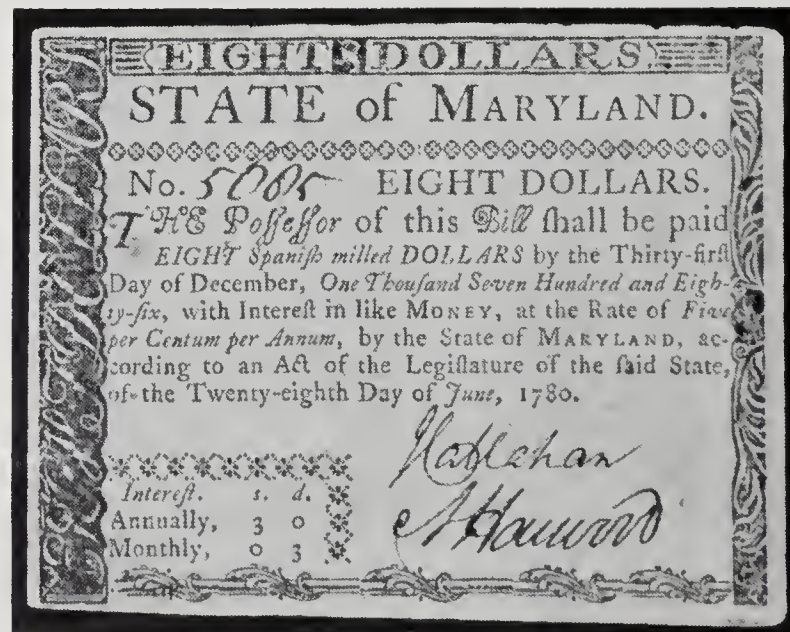 EIGHT DOLLARS.
STATE of MARYLAND.
No. 5085 EIGHT DOLLARS.
THE Poſſeſſor of this Bill ſhall be paid
EIGHT Spaniſh milled DOLLARS by the Thirty-firſt
Day of December, One Thouſand Seven Hundred and Eigh-
ty-ſix, with Intereſt in like MONEY, at the Rate of Five
per Centum per Annum, by the State of MARYLAND, ac-
cording to an Act of the Legiſlature of the ſaid State,
of the Twenty-eighth Day of June, 1780.
J Callahan
Intereſt. s. d.
Annually, 3 0
Monthly, 0 3
A Harwood